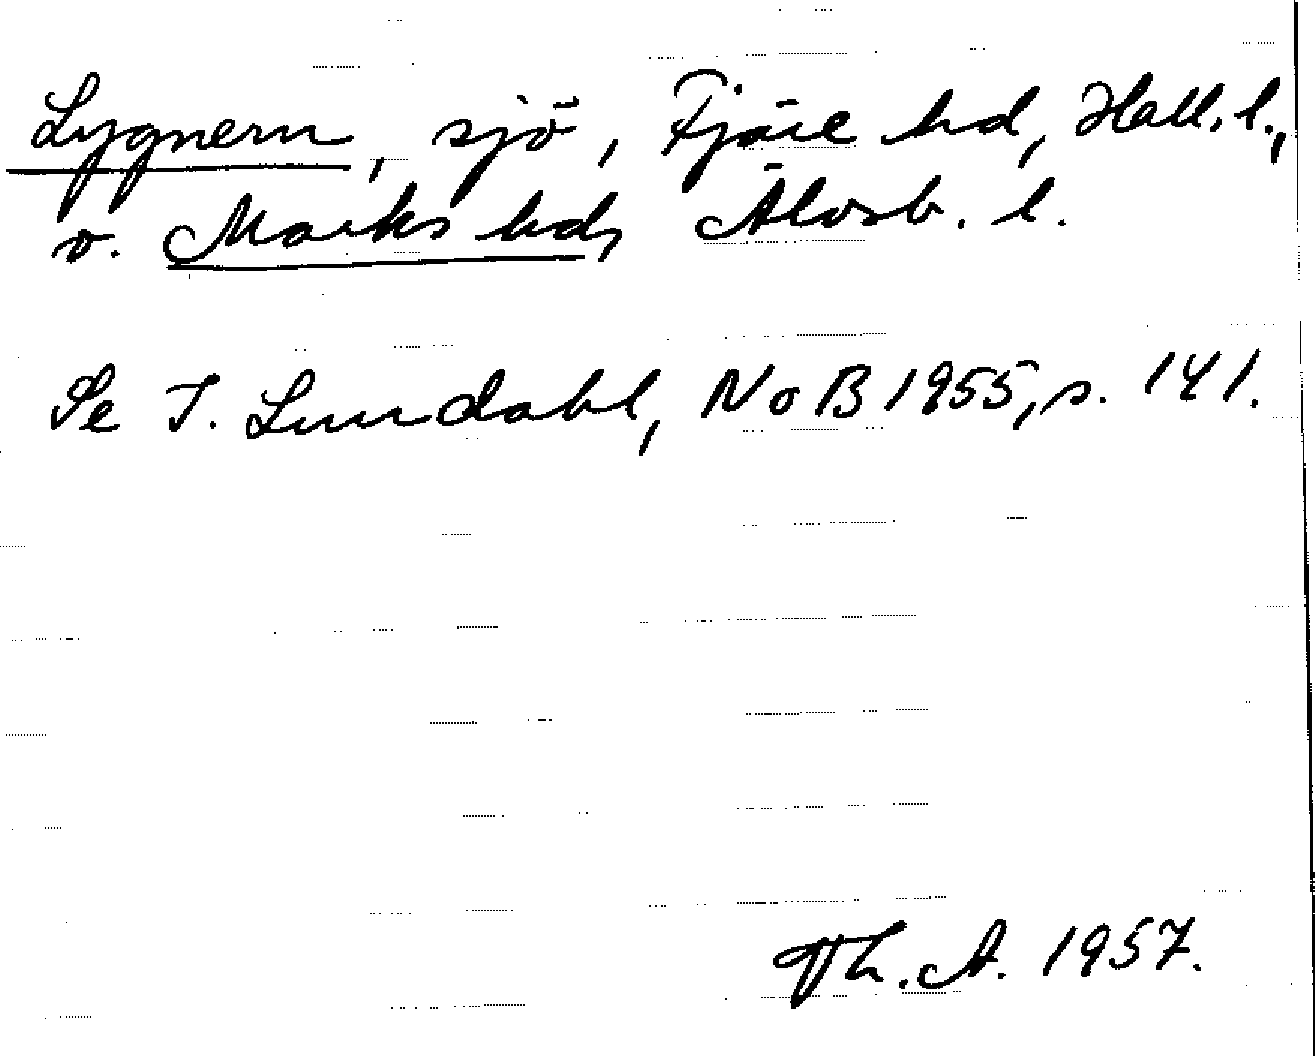 Lygnern, sjö, Fjäre hd, Hall. l.,
o. Marks hd, Älvsb. l.
Se I. Lundahl, NoB 1955, s. 141.
Th. A. 1957.